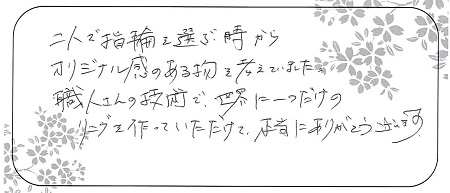 二人で指輪を選ぶ時から
オリジナル感のある物を考えていました。
職人さんの技術で、世界に一つだけの
リングを作っていただけて、本当にありがとうございます